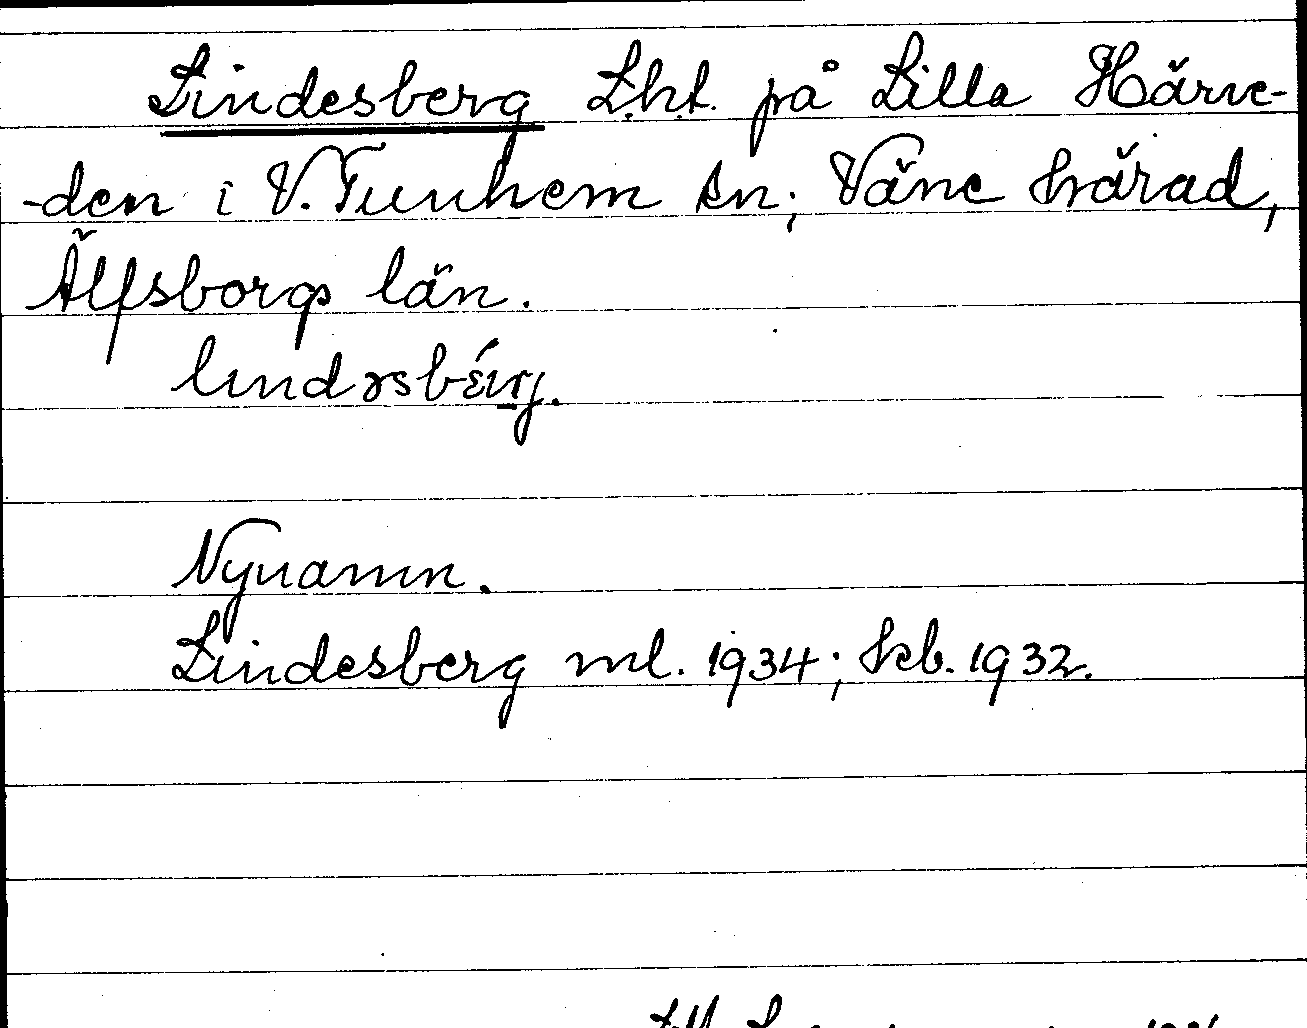 Lindesberg L.h.t. på Lilla Härve-
-den i V. Tunhem sn; Väne härad,
Älfsborgs län.
Nynamn.
Lindesberg ml. 1934; skb. 1932.